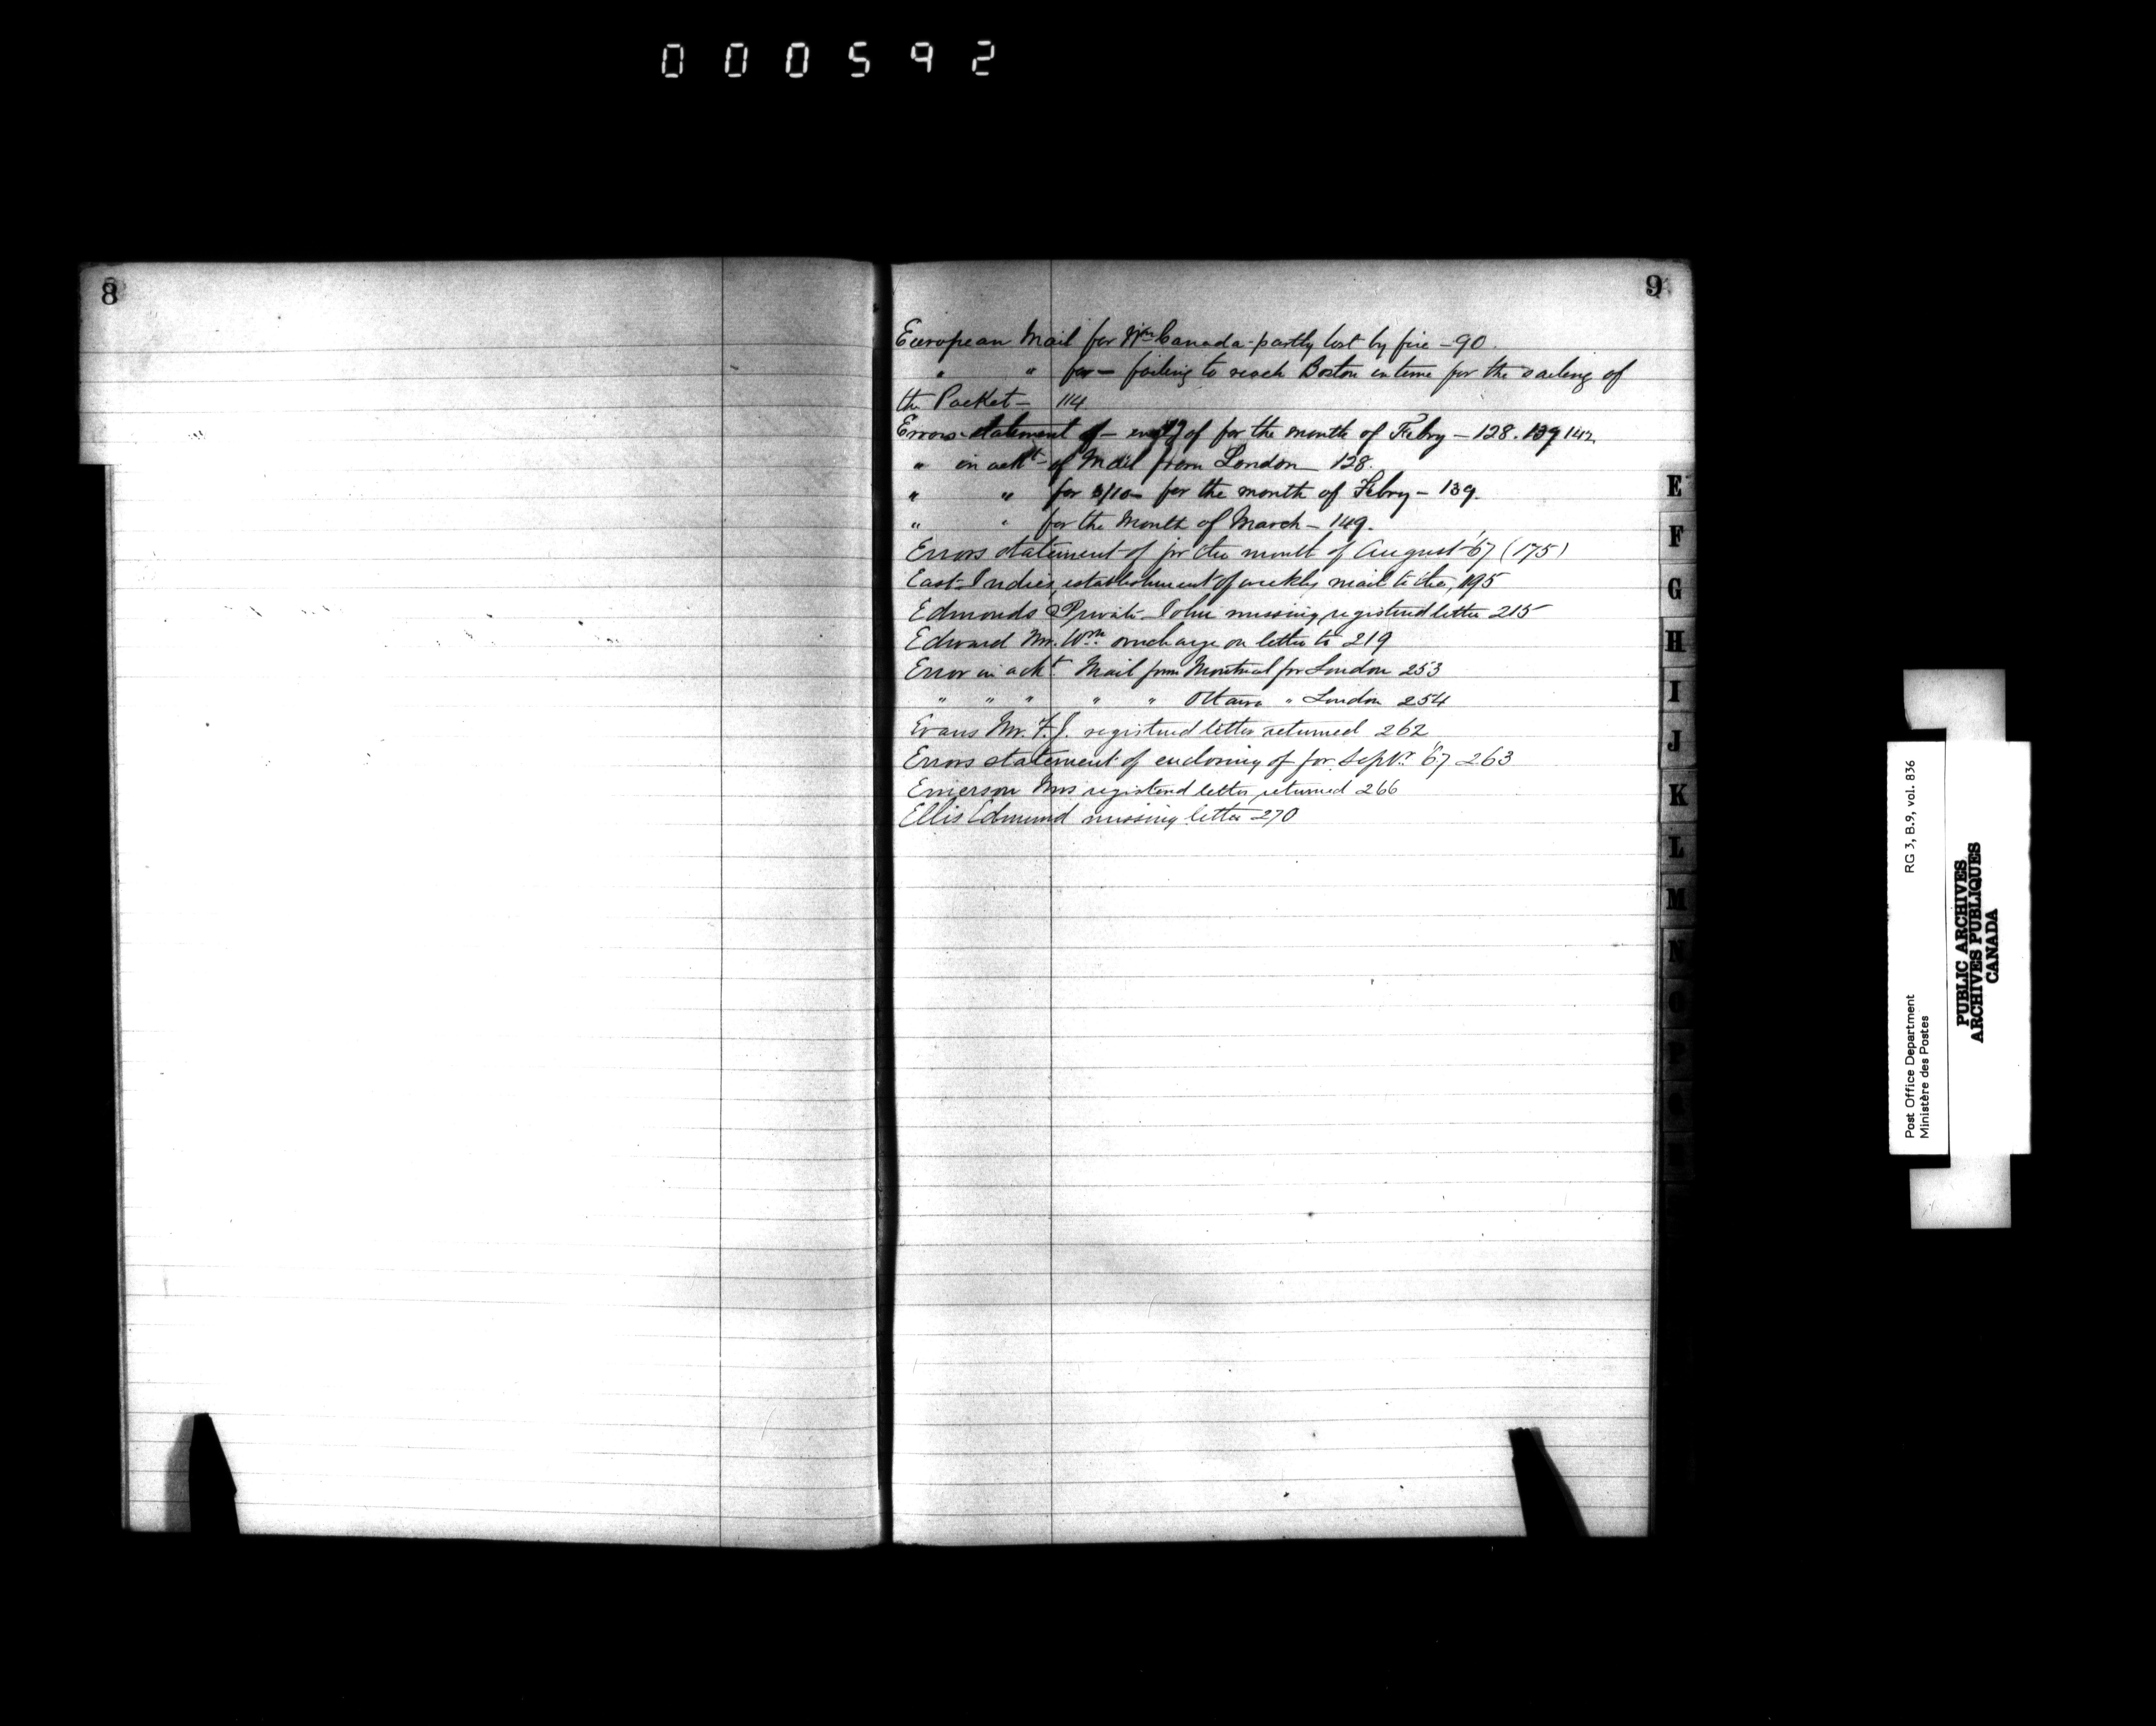 000592
8
9
European Mail for Wn Canada - partly lost by fire - 90.
" " for - failing to reach Boston in time for the sailing of
the Packet - 114
Errors - statement of - of for the month of Febry - 128. 139 142
" in ackt - of Mail from London - 128.
" " for for the month of Febry - 139.
" " for the Month of March - 149.
Errors statement of for the month of August '67 (175)
East-Indies, establishment of weekly mail to the, 195
Edmonds Private John missing registered letter 215
Edward Mr. Wm. overcharge on letter to 219
Error in ackt. Mail from Montreal for London 253
" " " " " Ottawa " London 254
Evans Mr. F.J. registered letter returned 262
Errors statement of enclosing of for Septr. '67 263
Emerson Mrs registered letter returned 266
Ellis Edmund missing letter 270
E
F
G
H
I
J
K
L
M
N
O
P
Post Office Department RG 3, B.9, vol. 836
Ministère des Postes
PUBLIC ARCHIVES
ARCHIVES PUBLIQUES
CANADA